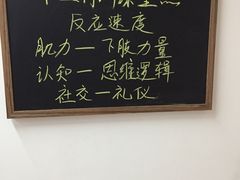 反应速度
肌力一下肢力量
认知一思维逻辑
社交一礼仪